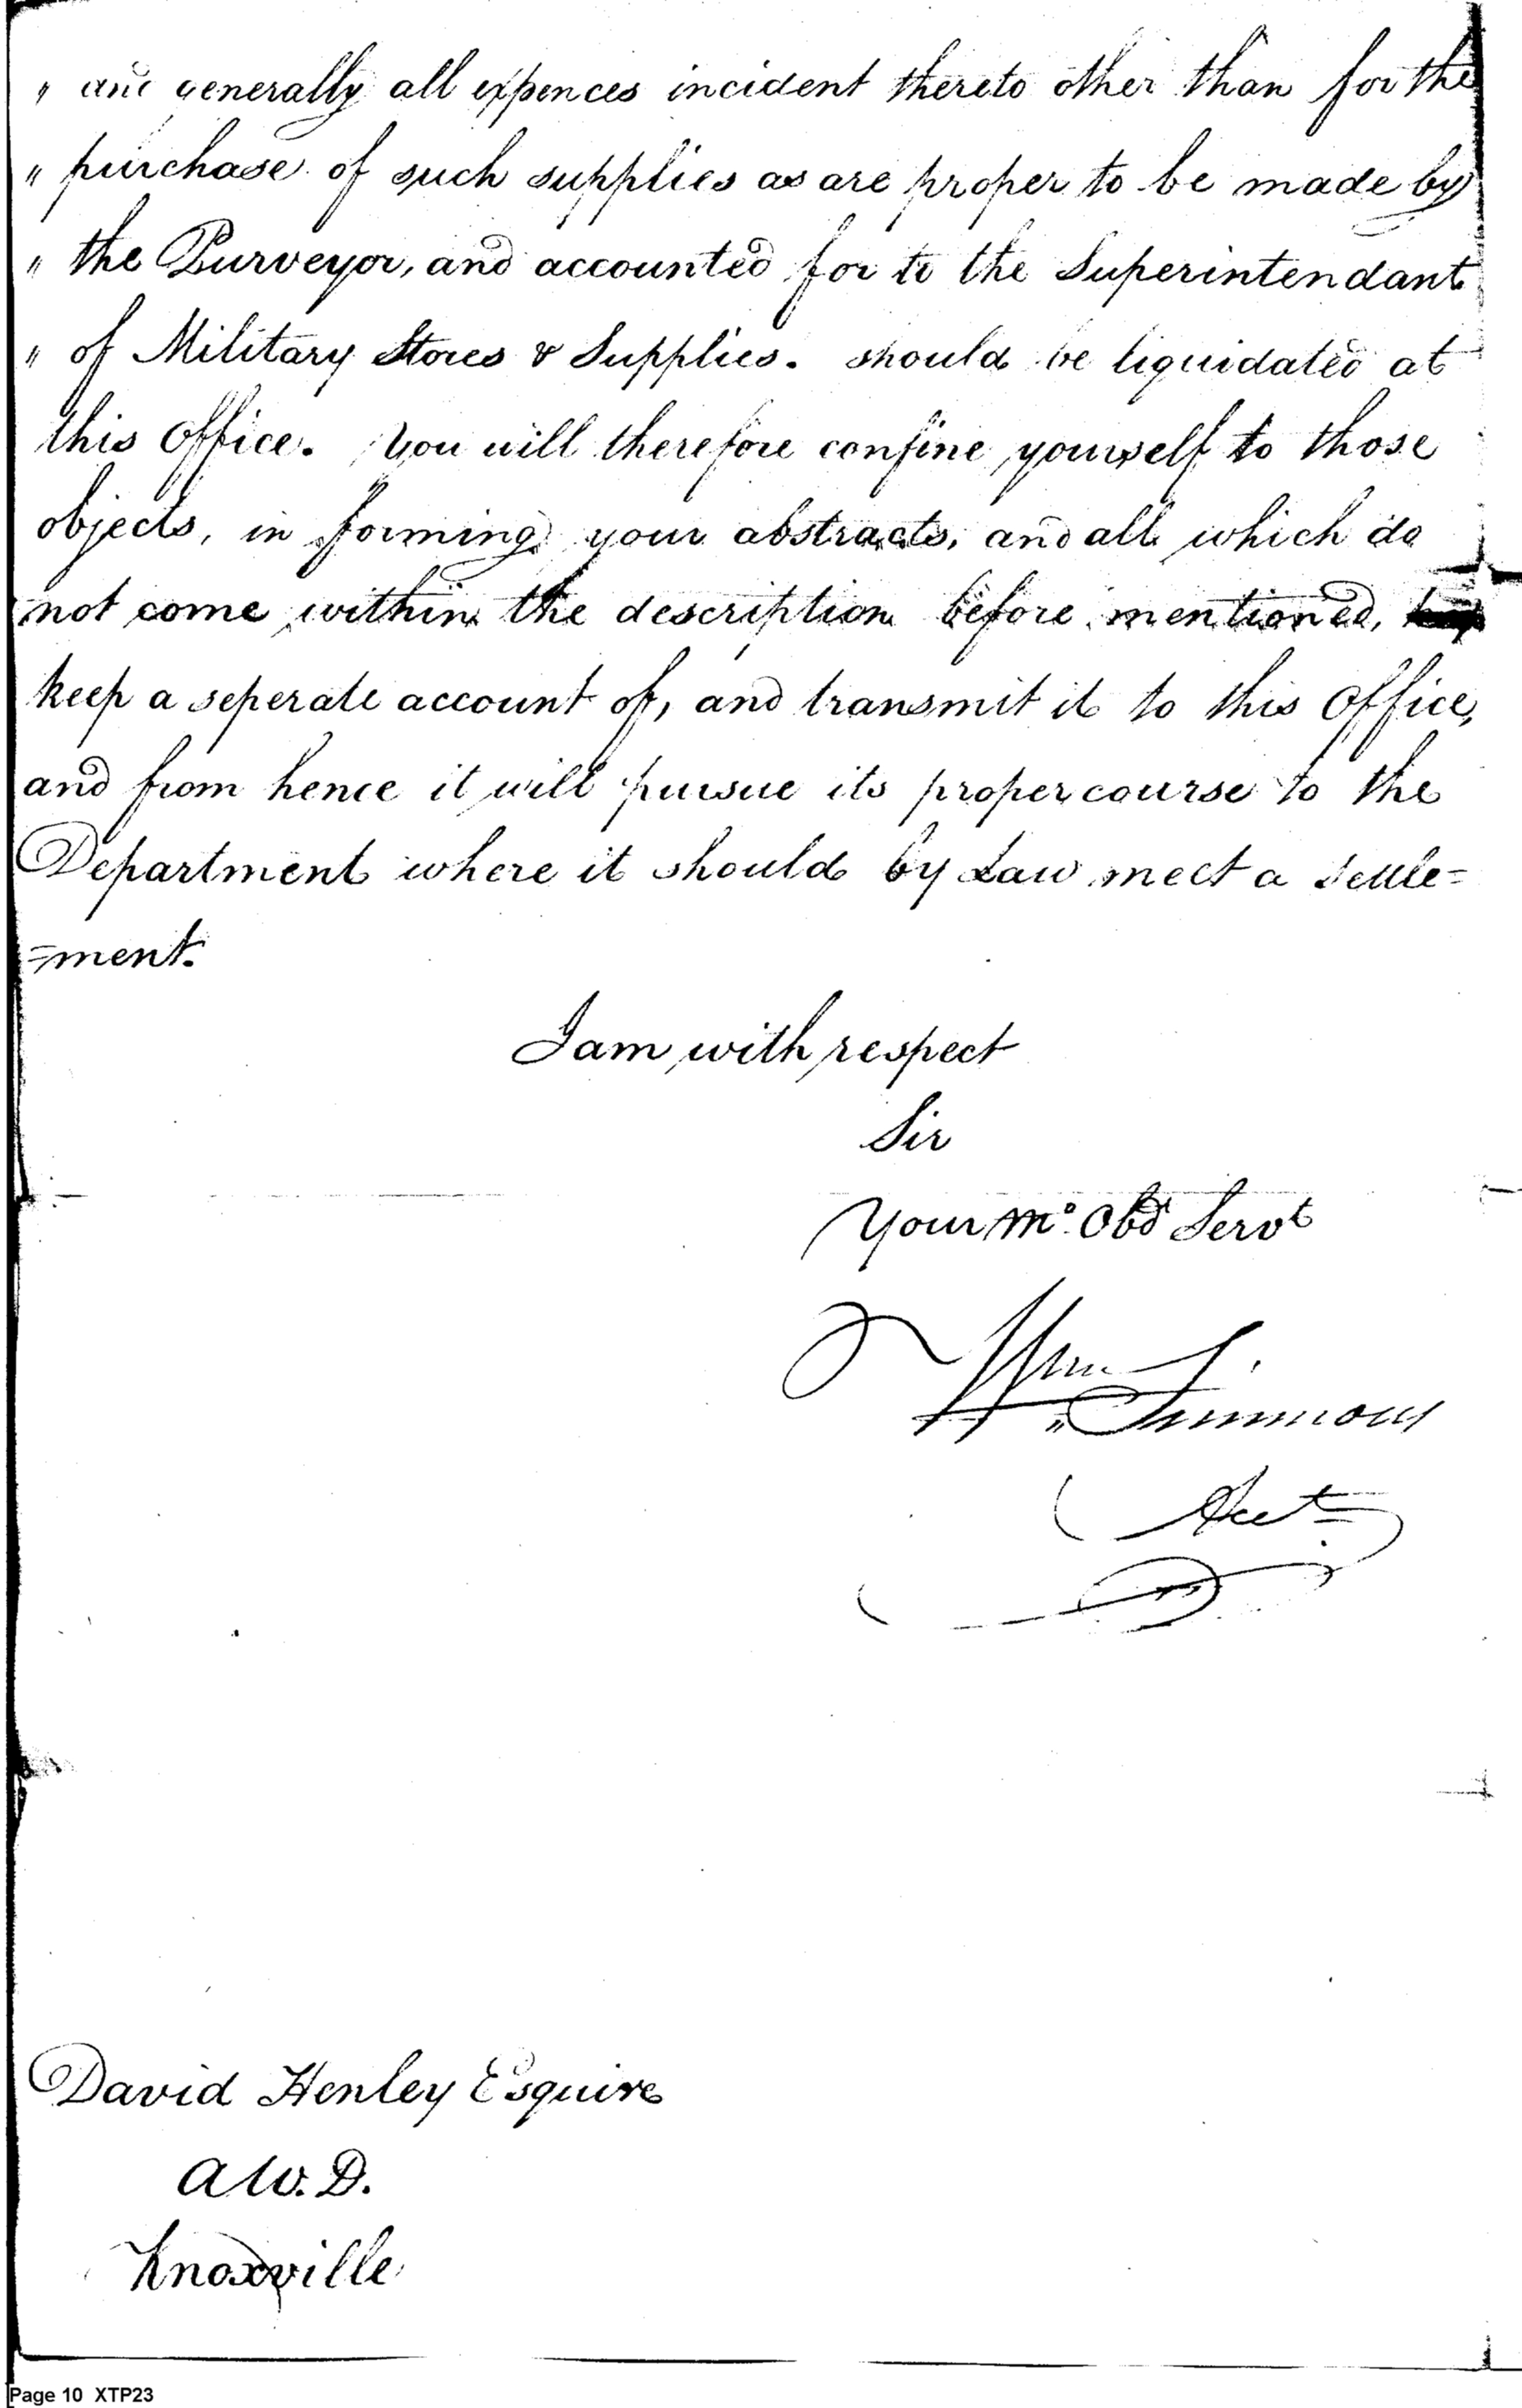 " and generally all expences incident thereto other than for the
" purchase of such supplies as are proper to be made by
" the Purveyor, and accounted for to the Superintendant
" of Military Stores & Supplies. should be liquidated at
this Office. You will therefore confine yourself to those
objects, in forming your abstracts, and all which do
not come within the description before mentioned,
keep a seperate account of, and transmit it to this Office,
and from hence it will pursue its proper course to the
Department where it should by Law meet a settle=
=ment.
I am with respect
Sir
Your Mo. Obd Servt
Wm
Simmons
Acct
David Henley Esquire
A W. D.
Knoxville
Page 10 XTP23